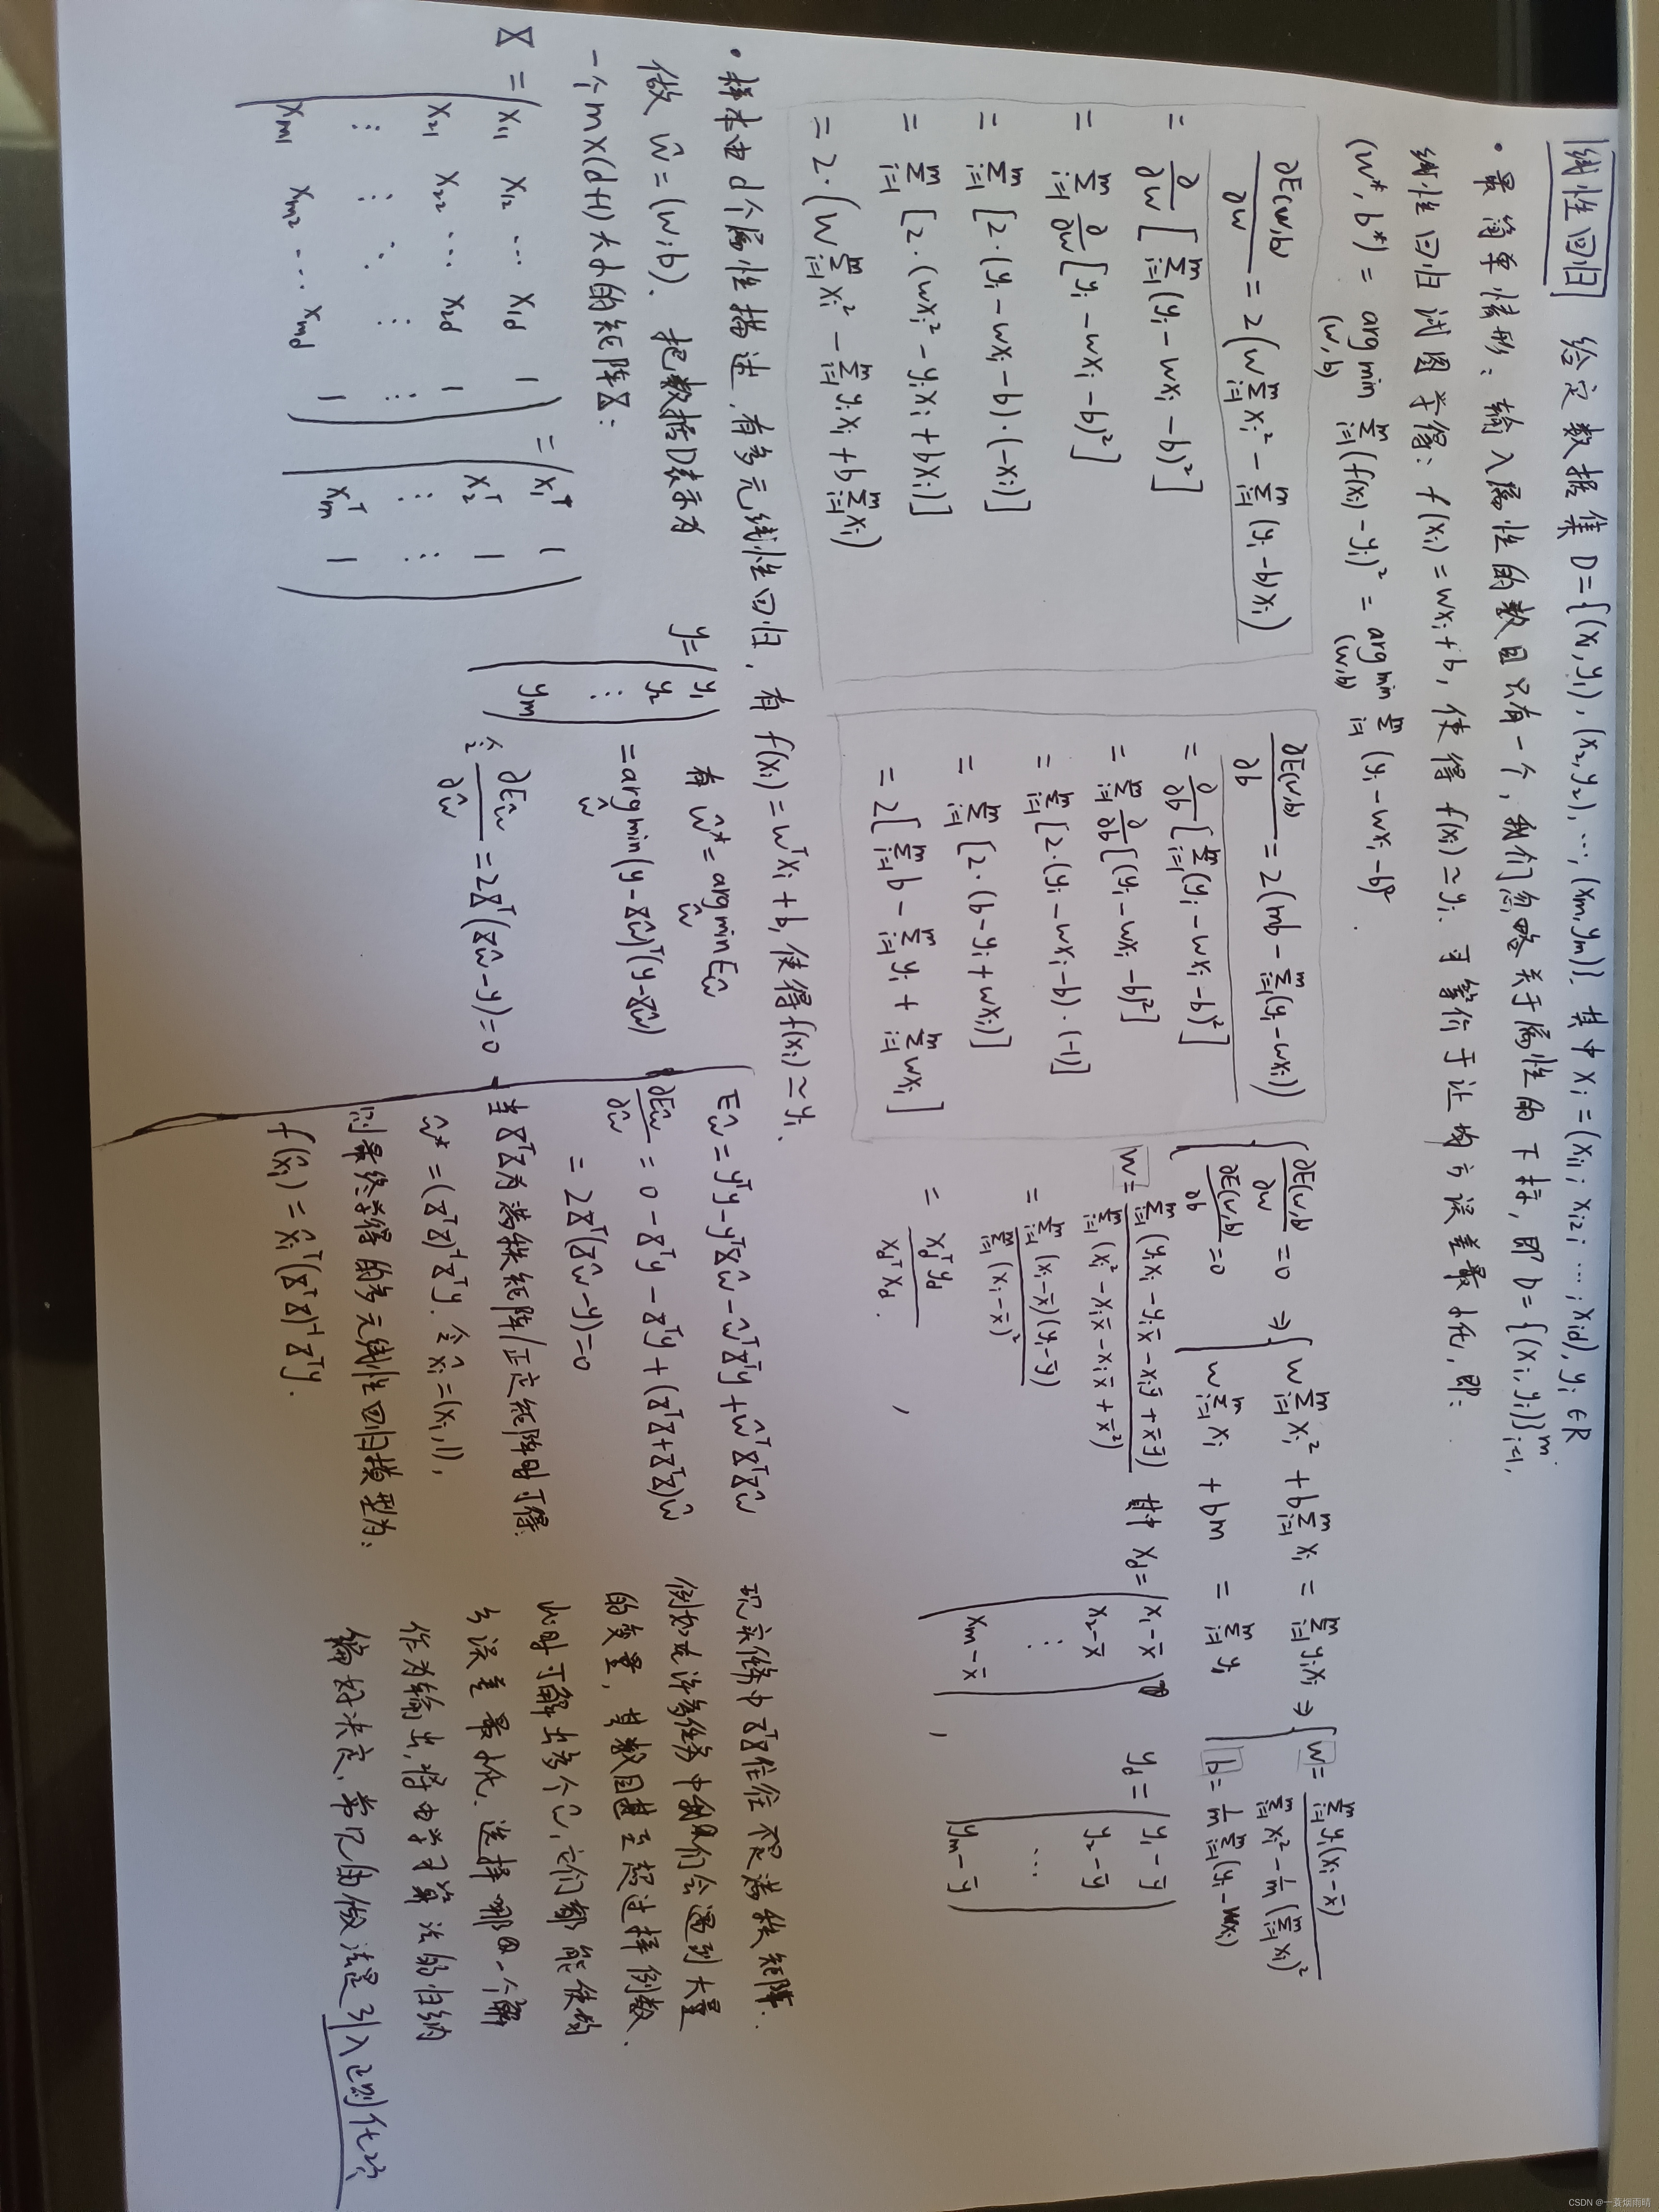 线性回归 给定数据集 D={(x₁,y₁),(x₂,y₂),…,(xₘ,yₘ)}. 其中 xᵢ=(xᵢ₁;xᵢ₂;…;xᵢd), yᵢ∈R
• 最简单情形：输入属性的数目只有一个，我们忽略关于属性的下标，即 D={(xᵢ,yᵢ)}ᵢ₌₁ᵐ.
线性回归试图学得：f(xᵢ)=wxᵢ+b, 使得 f(xᵢ)≃yᵢ. 可等价于让均方误差最小化，即：
(w*,b*) = arg min_(w,b) Σᵢ₌₁ᵐ(f(xᵢ)-yᵢ)² = arg min_(w,b) Σᵢ₌₁ᵐ(yᵢ-wxᵢ-b)².
∂E(w,b)/∂w = 2(wΣᵢ₌₁ᵐxᵢ² - Σᵢ₌₁ᵐ(yᵢ-b)xᵢ)
= ∂/∂w[Σᵢ₌₁ᵐ(yᵢ-wxᵢ-b)²]
= Σᵢ₌₁ᵐ ∂/∂w[yᵢ-wxᵢ-b)²]
= Σᵢ₌₁ᵐ[2·(yᵢ-wxᵢ-b)·(-xᵢ)]
= Σᵢ₌₁ᵐ[2·(wxᵢ²-yᵢxᵢ+bxᵢ)]
= 2·(wΣᵢ₌₁ᵐxᵢ² - Σᵢ₌₁ᵐyᵢxᵢ + bΣᵢ₌₁ᵐxᵢ)
∂E(w,b)/∂b = 2(mb - Σᵢ₌₁ᵐ(yᵢ-wxᵢ))
= ∂/∂b[Σᵢ₌₁ᵐ(yᵢ-wxᵢ-b)²]
= Σᵢ₌₁ᵐ ∂/∂b[(yᵢ-wxᵢ-b)²]
= Σᵢ₌₁ᵐ[2·(yᵢ-wxᵢ-b)·(-1)]
= Σᵢ₌₁ᵐ[2·(b-yᵢ+wxᵢ)]
= 2[Σᵢ₌₁ᵐb - Σᵢ₌₁ᵐyᵢ + Σᵢ₌₁ᵐwxᵢ]
{∂E(w,b)/∂w=0 ⇒ {wΣᵢ₌₁ᵐxᵢ² + bΣᵢ₌₁ᵐxᵢ = Σᵢ₌₁ᵐyᵢxᵢ ⇒ {w = Σᵢ₌₁ᵐyᵢ(xᵢ-x̄) / (Σᵢ₌₁ᵐxᵢ² - 1/m(Σᵢ₌₁ᵐxᵢ)²)
∂E(w,b)/∂b=0 wΣᵢ₌₁ᵐxᵢ + bm = Σᵢ₌₁ᵐyᵢ b = 1/m Σᵢ₌₁ᵐ(yᵢ-wxᵢ)
w = Σᵢ₌₁ᵐ(yᵢxᵢ-yᵢx̄-xᵢȳ+x̄ȳ) / Σᵢ₌₁ᵐ(xᵢ²-xᵢx̄-xᵢx̄+x̄²) 其中 x_d = (x₁-x̄ x₂-x̄ ⋮ xₘ-x̄), y_d = (y₁-ȳ y₂-ȳ … yₘ-ȳ)
= Σᵢ₌₁ᵐ(xᵢ-x̄)(yᵢ-ȳ) / Σᵢ₌₁ᵐ(xᵢ-x̄)²
= x_dᵀy_d / x_dᵀx_d.
• 样本由d个属性描述，有多元线性回归，有 f(xᵢ)=wᵀxᵢ+b, 使得f(xᵢ)≃yᵢ.
做 ŵ=(w;b). 把数据D表示为
一个m×(d+1)大小的矩阵X：
X = (x₁₁ x₁₂ … x₁d 1
x₂₁ x₂₂ … x₂d 1
⋮ ⋮ ⋱ ⋮ ⋮
xₘ₁ xₘ₂ … xₘd 1)
= (x₁ᵀ 1
x₂ᵀ 1
⋮ ⋮
xₘᵀ 1)
y = (y₁ y₂ ⋮ yₘ)
有 ŵ* = arg min_ŵ Eŵ
= arg min_ŵ (y-Xŵ)ᵀ(y-Xŵ)
令 ∂Eŵ/∂ŵ = 2Xᵀ(Xŵ-y)=0
Eŵ = yᵀy-yᵀXŵ-ŵᵀXᵀy+ŵᵀXᵀXŵ
∂Eŵ/∂ŵ = 0-Xᵀy-Xᵀy+(XᵀX+XᵀX)ŵ
= 2Xᵀ(Xŵ-y)=0
当XᵀX为满秩矩阵/正定矩阵时可得
ŵ* = (XᵀX)⁻¹Xᵀy. 令 x̂ᵢ=(xᵢ,1),
则最终学得的多元线性回归模型为：
f(x̂ᵢ) = x̂ᵢᵀ(XᵀX)⁻¹Xᵀy.
现实任务中XᵀX往往不是满秩矩阵.
例如在许多任务中我们会遇到大量
的变量，其数目甚至超过样例数.
此时可解出多个ŵ, 它们都能使均
方误差最小化. 选择哪一个解
作为输出，将由学习算法的归纳
偏好决定，常见的做法是引入正则化项
CSDN @一蓑烟雨晴